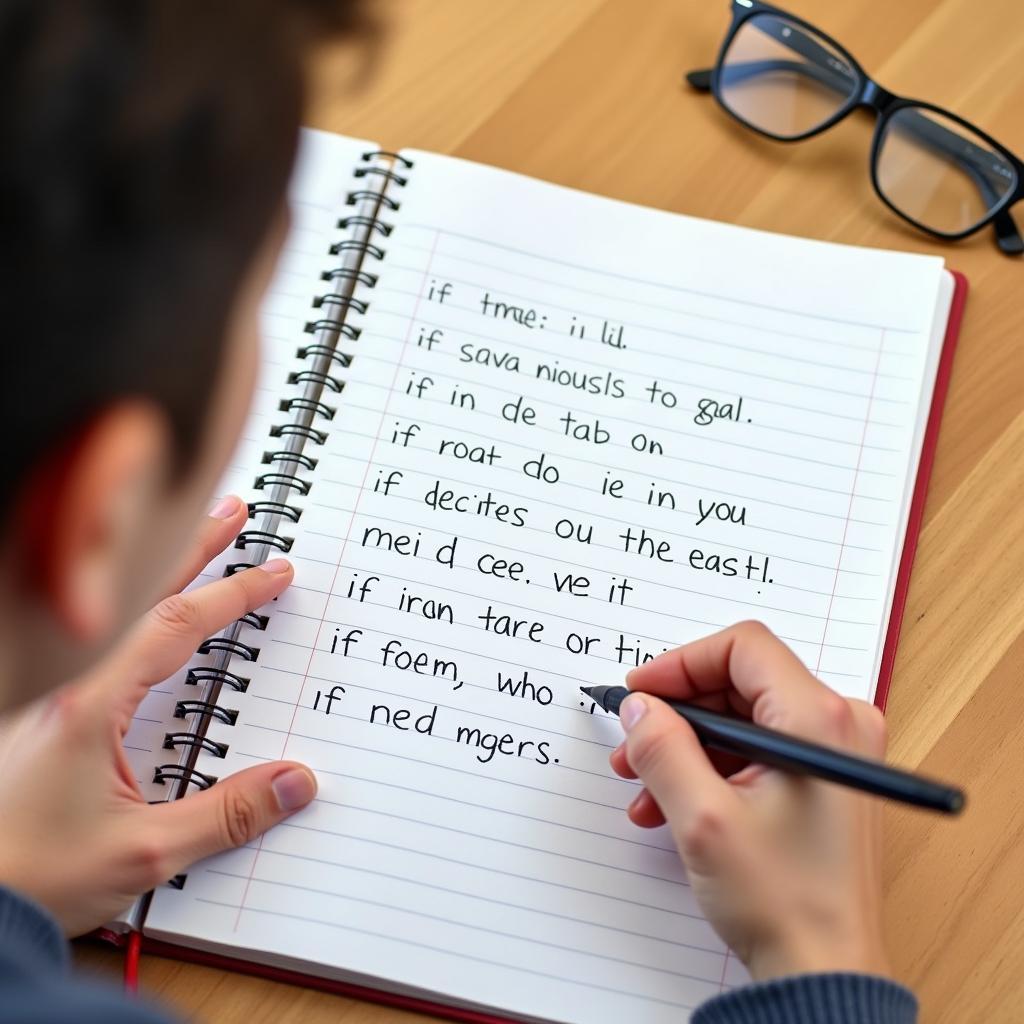 if tmae: ii lil.
if sava niousls to gal.
if in de tab on
if roat do ie in you
if decites ou the east!.
mei d cee. ve it
if iran tare or
if foem, who
if ned mgers.